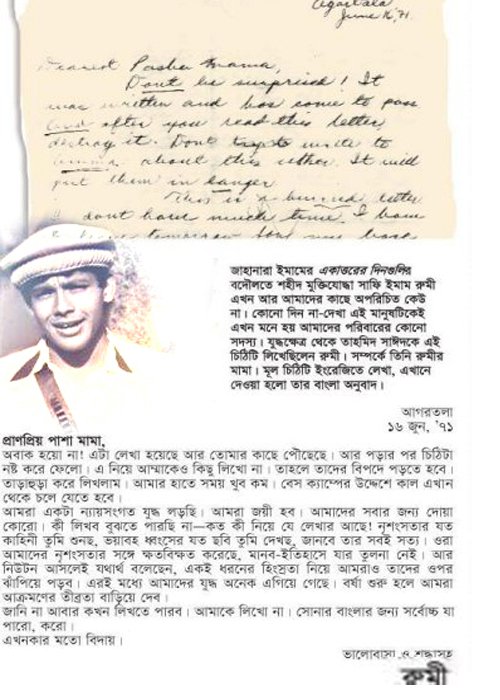 Agartala
June 16, 71.
Dearest Pasha Mama,
Dont be surprised! It
was written and has come to pass
And after you read this letter,
destroy it. Dont try to write to
Amma about this either. It will
put them in danger
This is a hurried letter
I dont have much time. I have
tomorrow for my base
জাহানারা ইমামের একাত্তরের দিনগুলির
বদৌলতে শহীদ মুক্তিযোদ্ধা সাফি ইমাম রুমী
এখন আর আমাদের কাছে অপরিচিত কেউ
না। কোনো দিন না-দেখা এই মানুষটিকেই
এখন মনে হয় আমাদের পরিবারের কোনো
সদস্য। যুদ্ধক্ষেত্র থেকে তাহমিদ সাঈদকে এই
চিঠিটি লিখেছিলেন রুমী। সম্পর্কে তিনি রুমীর
মামা। মূল চিঠিটি ইংরেজিতে লেখা, এখানে
দেওয়া হলো তার বাংলা অনুবাদ।
আগরতলা
১৬ জুন, '৭১
প্রাণপ্রিয় পাশা মামা,
অবাক হয়ো না! এটা লেখা হয়েছে আর তোমার কাছে পৌছেছে। আর পড়ার পর চিঠিটা
নষ্ট করে ফেলো। এ নিয়ে আম্মাকেও কিছু লিখো না। তাহলে তাদের বিপদে পড়তে হবে।
তাড়াহুড়া করে লিখলাম। আমার হাতে সময় খুব কম। বেস ক্যাম্পের উদ্দেশে কাল এখান
থেকে চলে যেতে হবে।
আমরা একটা ন্যায়সংগত যুদ্ধ লড়ছি। আমরা জয়ী হব। আমাদের সবার জন্য দোয়া
কোরো। কী লিখব বুঝতে পারছি না—কত কী নিয়ে যে লেখার আছে! নৃশংসতার যত
কাহিনী তুমি শুনছ, ভয়াবহ ধ্বংসের যত ছবি তুমি দেখছ, জানবে তার সবই সত্য। ওরা
আমাদের নৃশংসতার সঙ্গে ক্ষতবিক্ষত করেছে, মানব-ইতিহাসে যার তুলনা নেই। আর
নিউটন আসলেই যথার্থ বলেছেন, একই ধরনের হিংস্রতা নিয়ে আমরাও তাদের ওপর
ঝাঁপিয়ে পড়ব। এরই মধ্যে আমাদের যুদ্ধ অনেক এগিয়ে গেছে। বর্ষা শুরু হলে আমরা
আক্রমণের তীব্রতা বাড়িয়ে দেব।
জানি না আবার কখন লিখতে পারব। আমাকে লিখো না। সোনার বাংলার জন্য সর্বোচ্চ যা
পারো, করো।
এখনকার মতো বিদায়।
ভালোবাসা ও শ্রদ্ধাসহ
রুমী